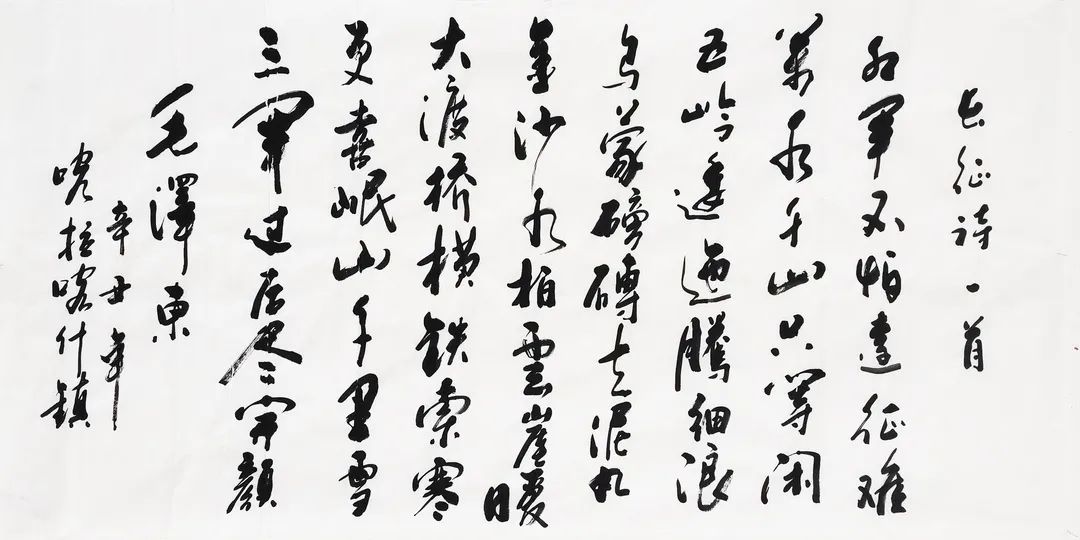 长征诗一首
红军不怕遠征难
萬水千山只等闲
五岭逶迤腾细浪
乌蒙磅礴走泥丸
金沙水拍雲崖暖
大渡桥横铁索寒
更喜岷山千里雪
三军过后尽开颜
毛澤東
辛丑年
喀拉喀什镇